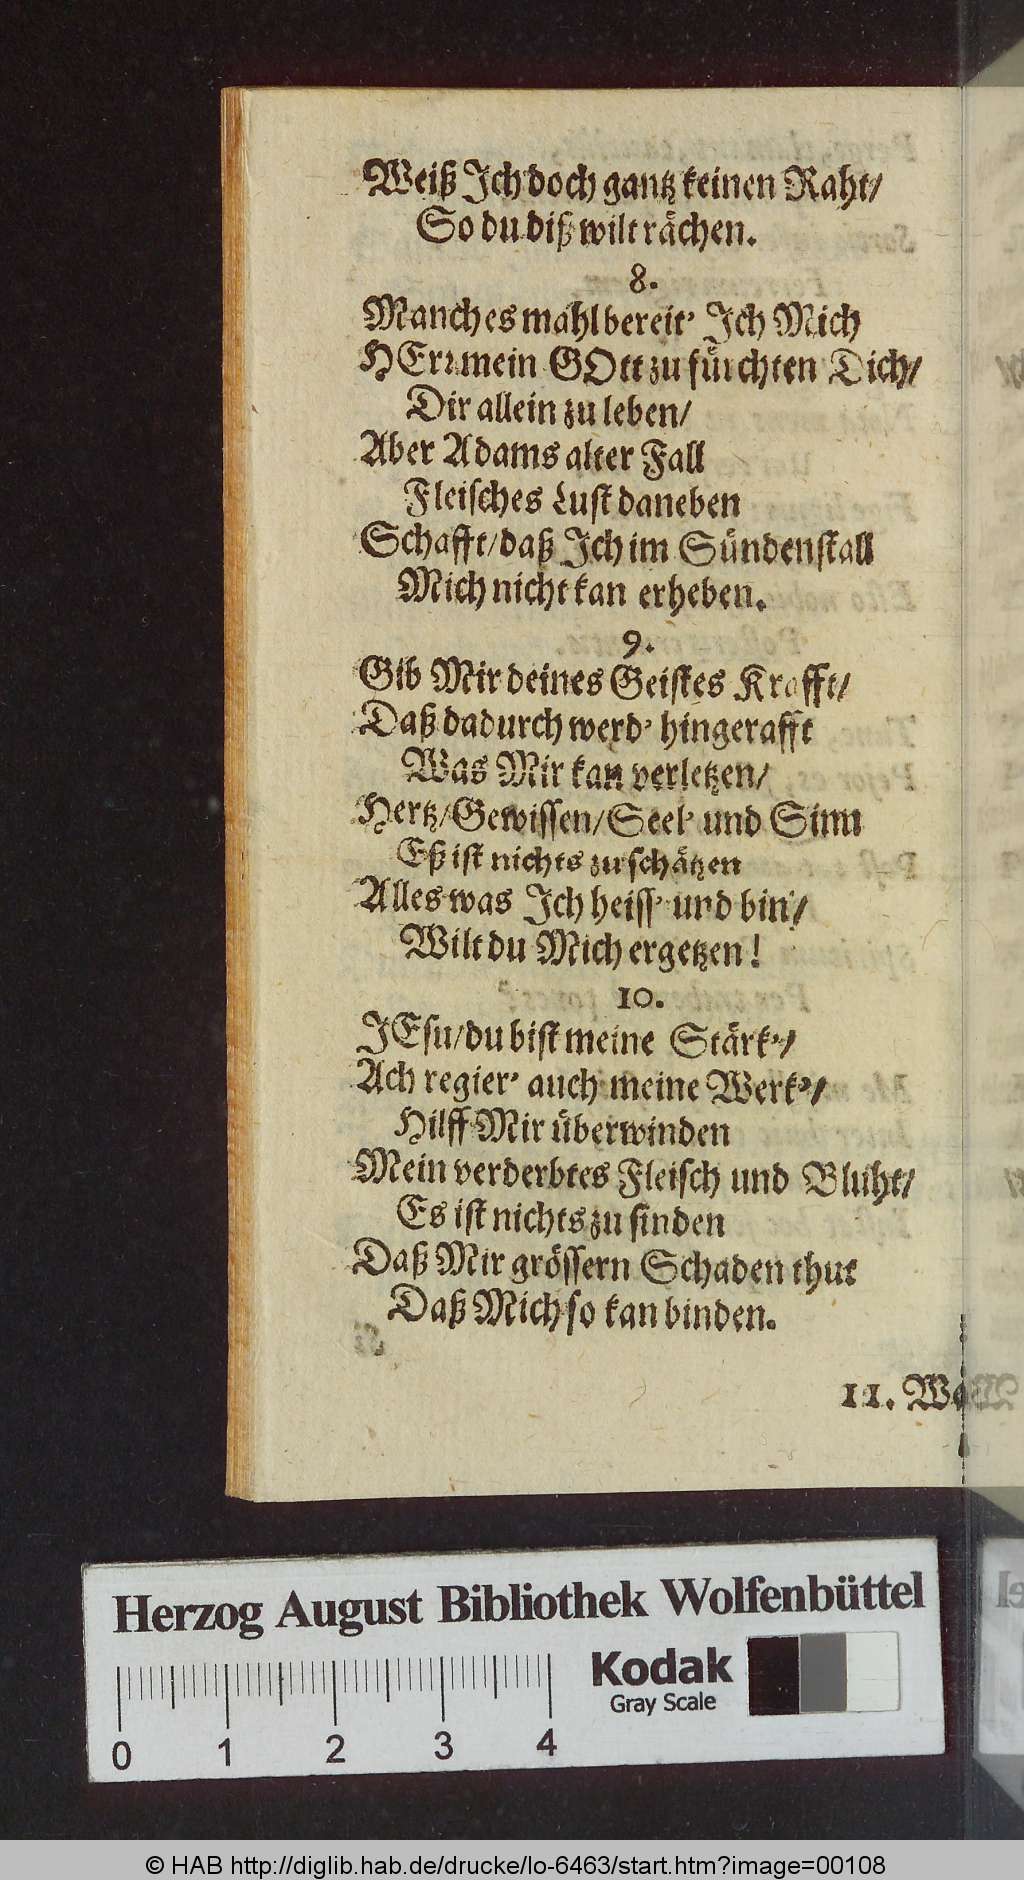 Weiß Ich doch gantz keinen Raht/
So du diß wilt rächen.
8.
Manches mahl bereit' Ich Mich
HErr mein GOtt zu fürchten Dich/
Dir allein zu leben/
Aber Adams alter Fall
Fleisches Lust daneben
Schafft/ daß Ich im Sündenstall
Mich nicht kan erheben.
9.
Gib Mir deines Geistes Krafft/
Daß dadurch werd' hingerafft
Was Mir kan verletzen/
Hertz/ Gewissen/ Seel' und Sinn
Eß ist nichts zu schätzen
Alles was Ich heiss' und bin/
Wilt du Mich ergetzen!
10.
JEsu/ du bist meine Stärk'/
Ach regier' auch meine Werk'/
Hilff Mir überwinden
Mein verderbtes Fleisch und Bluht/
Es ist nichts zu finden
Daß Mir grössern Schaden thut
Daß Mich so kan binden.
11. Wa
Herzog August Bibliothek Wolfenbüttel
Kodak
Gray Scale
0 1 2 3 4
© HAB http://diglib.hab.de/drucke/lo-6463/start.htm?image=00108